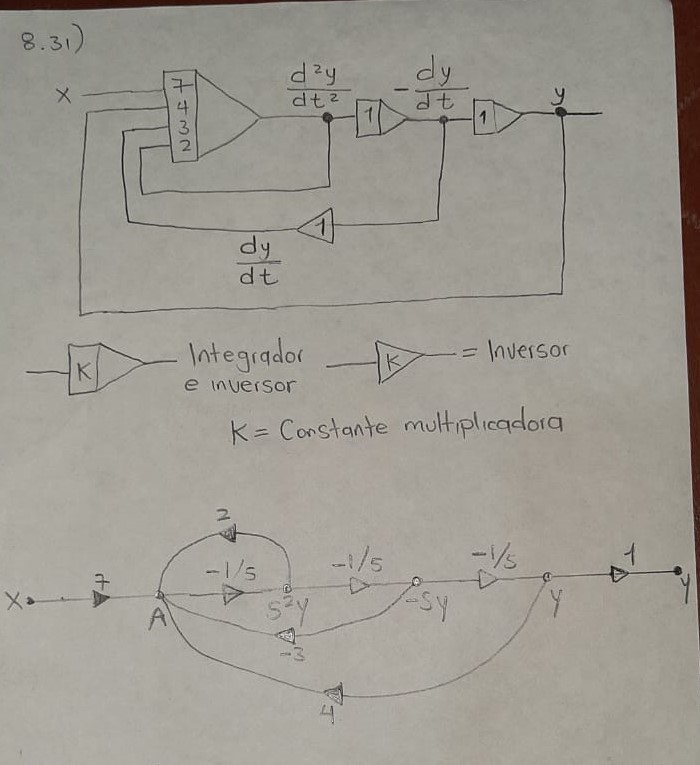 8.31)
X
7
4
3
2
d²y
dt²
1
- dy
dt
1
y
1
dy
dt
K
Integrador
e inversor
K
= Inversor
K = Constante multiplicadora
2
X
7
A
-1/s
s²Y
-1/s
-sY
-1/s
Y
1
y
-3
4